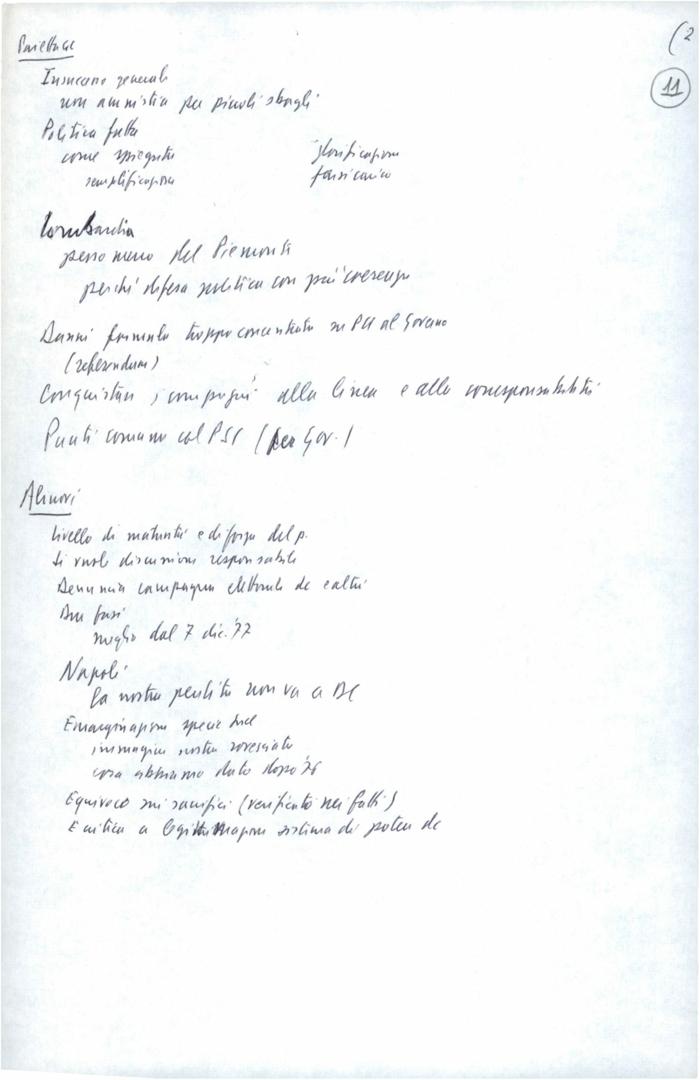 (2
11
Pajetta GC
Insuccesso generale
non amnistia per piccoli sbagli
Politica fatta
come spiegata glorificazione
semplificazione
Lombardia
perso meno del Piemonte
perché difesa politica con più coerenza
Danni formula troppo concentrata su PCI al Governo
(referendum)
Conquistare i compagni alla linea e alla corresponsabilità
Punti comuni col PSI (per Gov.)
Alinovi
Livello di maturità e di forza del p.
Si vuole discussione responsabile
Denuncia campagna elettorale dc e altri
Due fasi
meglio dal 7 dic. '77
Napoli
la nostra perdita non va a DC
Emarginazione specie Sud
immagine nostra rovesciata
cosa abbiamo dato dopo '76
Equivoco sui sacrifici (verificato nei fatti)
E critica a legittimazione sistema di potere dc